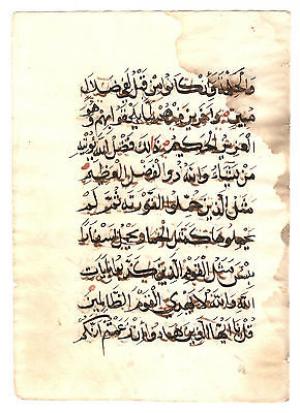 والحكمة وان كانوا من قبل لفي ضلال
مبين واخرين منهم لما يلحقوا بهم وهو
العزيز الحكيم ذلك فضل الله يوتيه
من يشاء والله ذو الفضل العظيم
مثل الذين حملوا التورية ثم لم
يحملوها كمثل الحمار يحمل اسفارا
بئس مثل القوم الذين كذبوا بايات
الله والله لا يهدي القوم الظالمين
قل يا ايها الذين هادوا ان زعمتم انكم